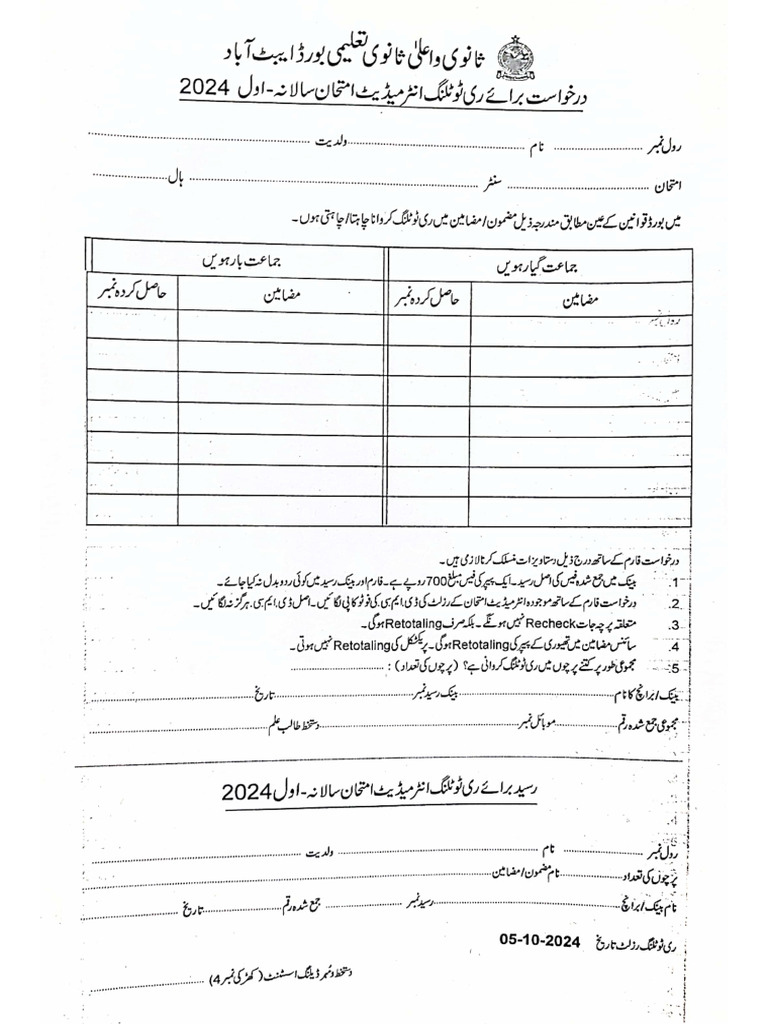 ثانوی و اعلیٰ ثانوی تعلیمی بورڈ ایبٹ آباد
درخواست برائے ری ٹوٹلنگ انٹرمیڈیٹ امتحان سالانہ - اول 2024
رول نمبر .................... نام .................... ولدیت ....................
امتحان .................... سنٹر .................... ہال ....................
میں بورڈ قوانین کے عین مطابق مندرجہ ذیل مضمون/مضامین میں ری ٹوٹلنگ کروانا چاہتا/چاہتی ہوں۔
جماعت گیارہویں جماعت بارہویں
مضامین حاصل کردہ نمبر مضامین حاصل کردہ نمبر
درخواست فارم کے ساتھ درج ذیل دستاویزات منسلک کرنا لازمی ہیں۔
1. بینک میں جمع شدہ فیس کی اصل رسید۔ ایک پیپر کی فیس مبلغ 700 روپے ہے۔ فارم اور بینک رسید میں کوئی ردوبدل نہ کیا جائے۔
2. درخواست فارم کے ساتھ موجودہ انٹرمیڈیٹ امتحان کے رزلٹ کی ڈی.ایم.سی کی فوٹو کاپی لگائیں۔ اصل ڈی.ایم.سی ہرگز نہ لگائیں۔
3. متعلقہ پرچہ جات Recheck نہیں ہونگے۔ بلکہ صرف Retotaling ہوگی۔
4. سائنس مضامین میں تھیوری کے پیپر کی Retotaling ہوگی۔ پریکٹیکل کی Retotaling نہیں ہوتی۔
5. مجموعی طور پر کتنے پرچوں میں ری ٹوٹلنگ کروانی ہے؟ (پرچوں کی تعداد) : ....................
بینک/برانچ کا نام .................... بینک رسید نمبر .................... تاریخ ....................
مجموعی جمع شدہ رقم .................... موبائل نمبر .................... دستخط طالب علم ....................
رسید برائے ری ٹوٹلنگ انٹرمیڈیٹ امتحان سالانہ - اول 2024
رول نمبر .................... نام .................... ولدیت ....................
پرچوں کی تعداد .................... نام مضمون/مضامین ....................
نام بینک/برانچ .................... رسید نمبر .................... جمع شدہ رقم .................... تاریخ ....................
ری ٹوٹلنگ رزلٹ تاریخ 05-10-2024
دستخط و مہر ڈیلنگ اسسٹنٹ (کھڑکی نمبر 4) ....................